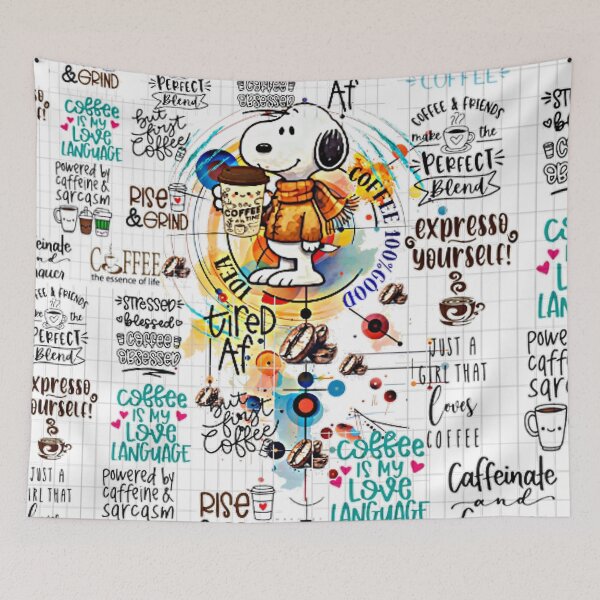 & GRIND
PERFECT
Blend
COFFEE
OBSESSED
Af
COFFEE
COFFEE & FRIENDS
make the
PERFECT
Blend
STRESSED
blessed
COFFEE
OBSESSED
Coffee
IS MY
LOVE
LANGUAGE
but
first
Coffee
powered by
caffeine &
sarcasm
RISE
& GRIND
COFFEE
COFFEE 100% GOOD
IDEA
expresso
yourself!
Coffee
IS MY
LOVE
LANGUAGE
ffeinate
and
nquer
COFFEE
the essence of life
EE & FRIENDS
ke the
PERFECT
Blend
STRESSED
blessed
COFFEE
OBSESSED
tired
Af
JUST A
GIRL THAT
loves
COFFEE
powered
caffeine
sarcas
xpresso
ourself!
Coffee
IS MY
LOVE
LANGUAGE
but
first
Coffee
Coffee
IS MY
LOVE
LANGUAGE
JUST A
IRL THAT
loves
powered by
caffeine &
sarcasm
RISE
Caffeinate
and